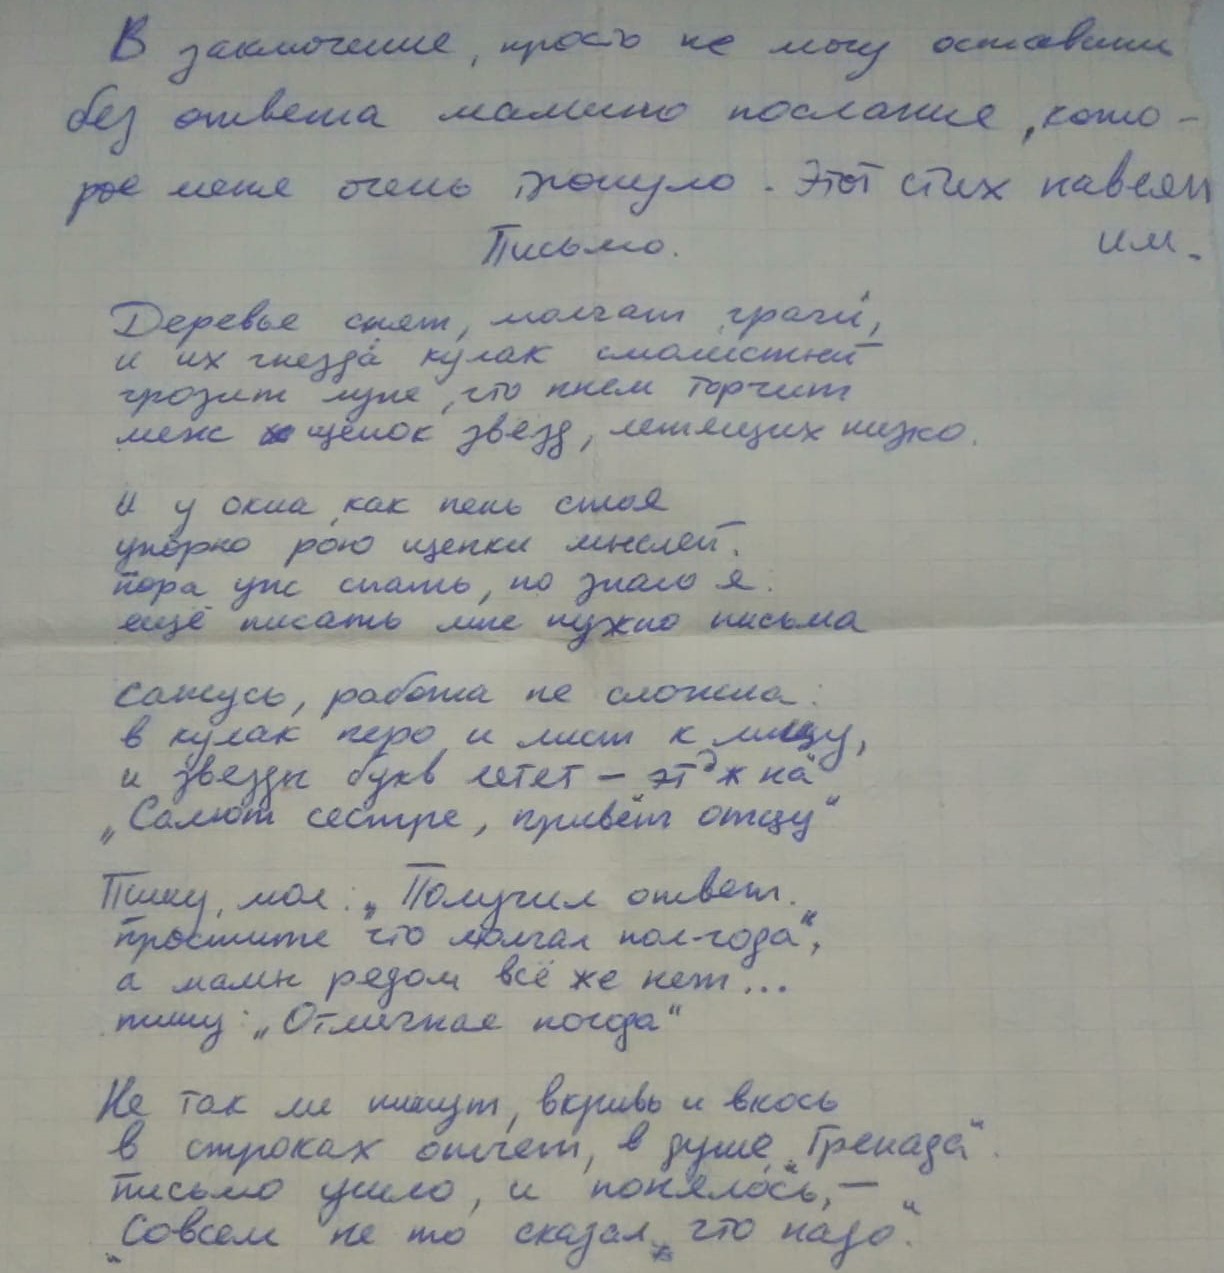 В заключение, просто не могу оставить
без ответа мамино послание, кото-
рое меня очень тронуло. Этот стих навеян
им.
Письмо.
Деревья спят, молчат грачи,
и их гнезда кулак смолистый
грозит луне, что пнем торчит
меж щепок звезд, летящих низко.
И у окна, как пень стоя
упорно рою щепки мыслей.
пора уж спать, но знаю я:
ещё писать мне нужно письма
сажусь, работа не сложна:
в кулак перо и лист к лицу,
и звезды букв летят – это ж на
„Салют сестре, привет отцу"
Пишу, мол: „Получил ответ.
простите что молчал пол-года",
а мамы рядом всё же нет...
пишу: „Отличная погода"
Не так ли пишут, вкривь и вкось
в строках отчет, в душе „Гренада".
письмо ушло, и понялось, –
„Совсем не то сказал, что надо".